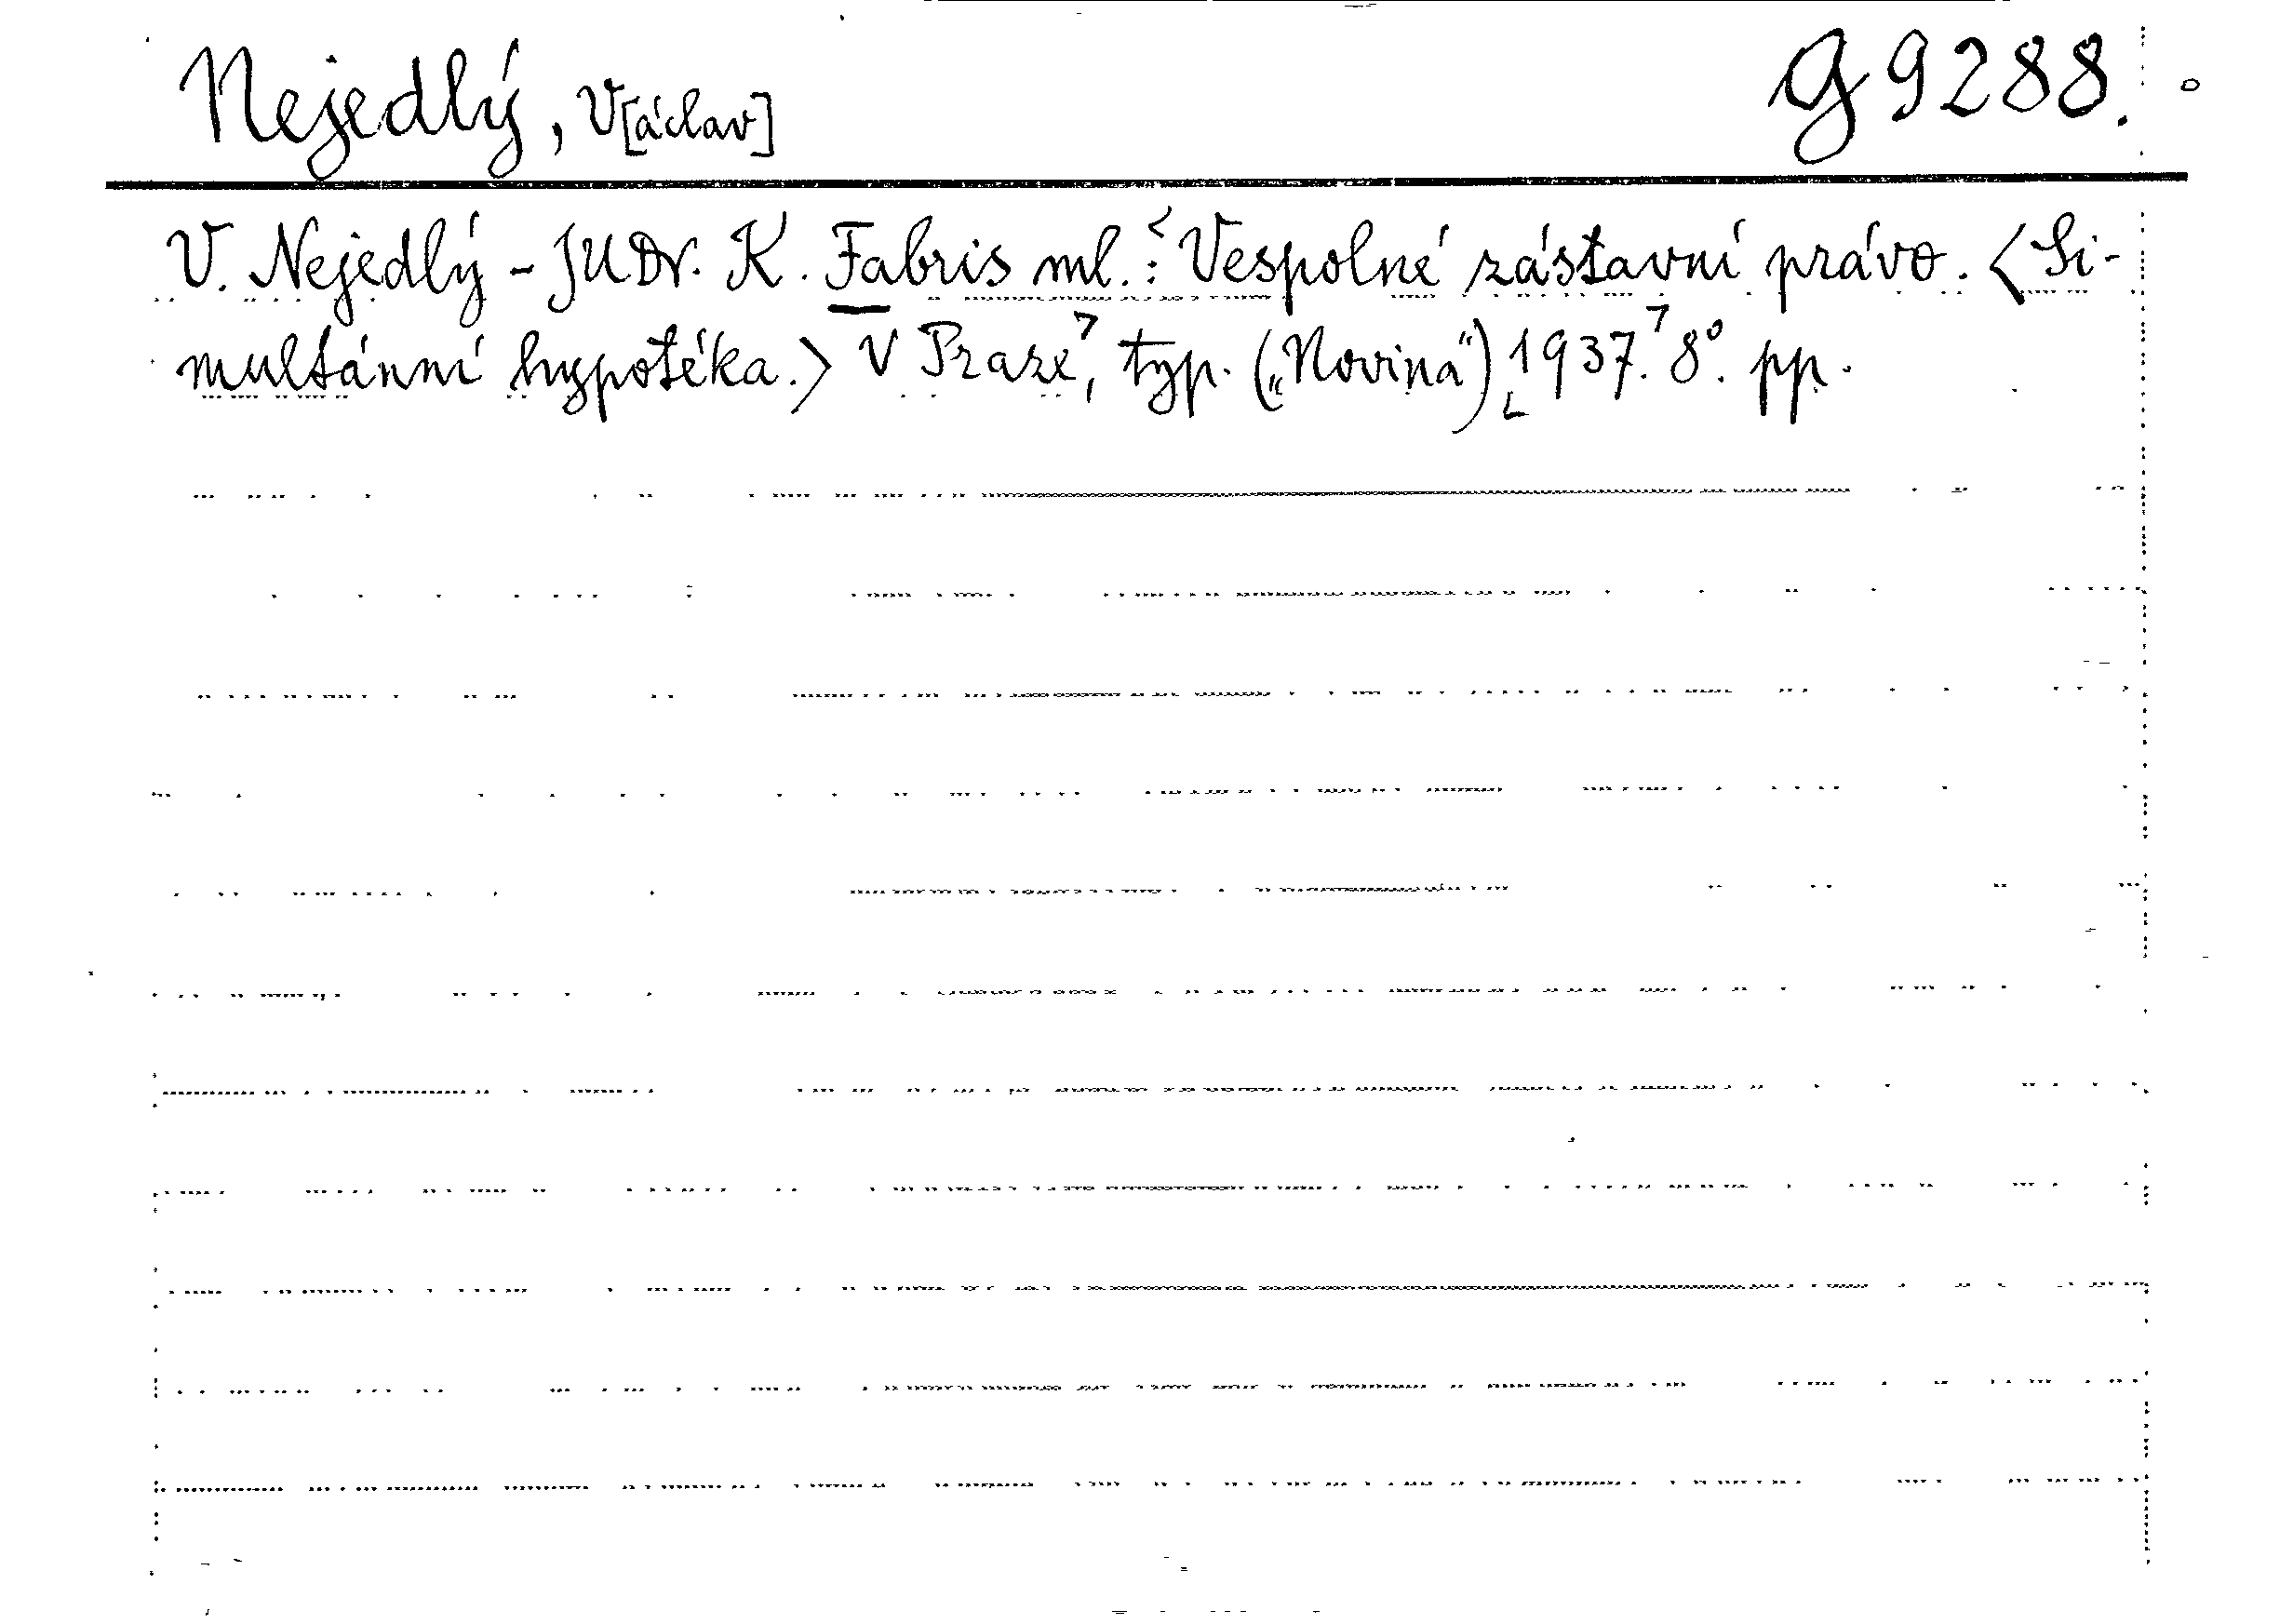 Nejedlý, V[áclav] G 9288.
V. Nejedlý - JUDr. K. Fabris ml.: Vespolné zástavní právo. <Si-
multánní hypotéka.> V Praze, typ. („Novina“) 1937. 8°. pp.